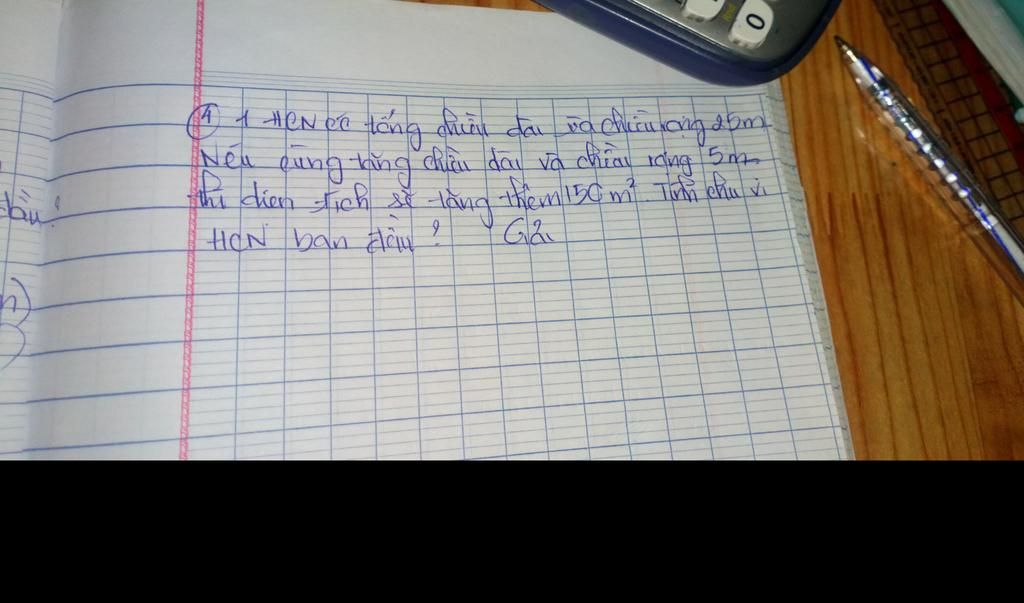 ④ 1 HCN có tổng chiều dài và chiều rộng 25m
Nếu cùng tăng chiều dài và chiều rộng 5m
thì diện tích sẽ tăng thêm 150 m². Tính chu vi
HCN ban đầu? Giải
đầu?
0